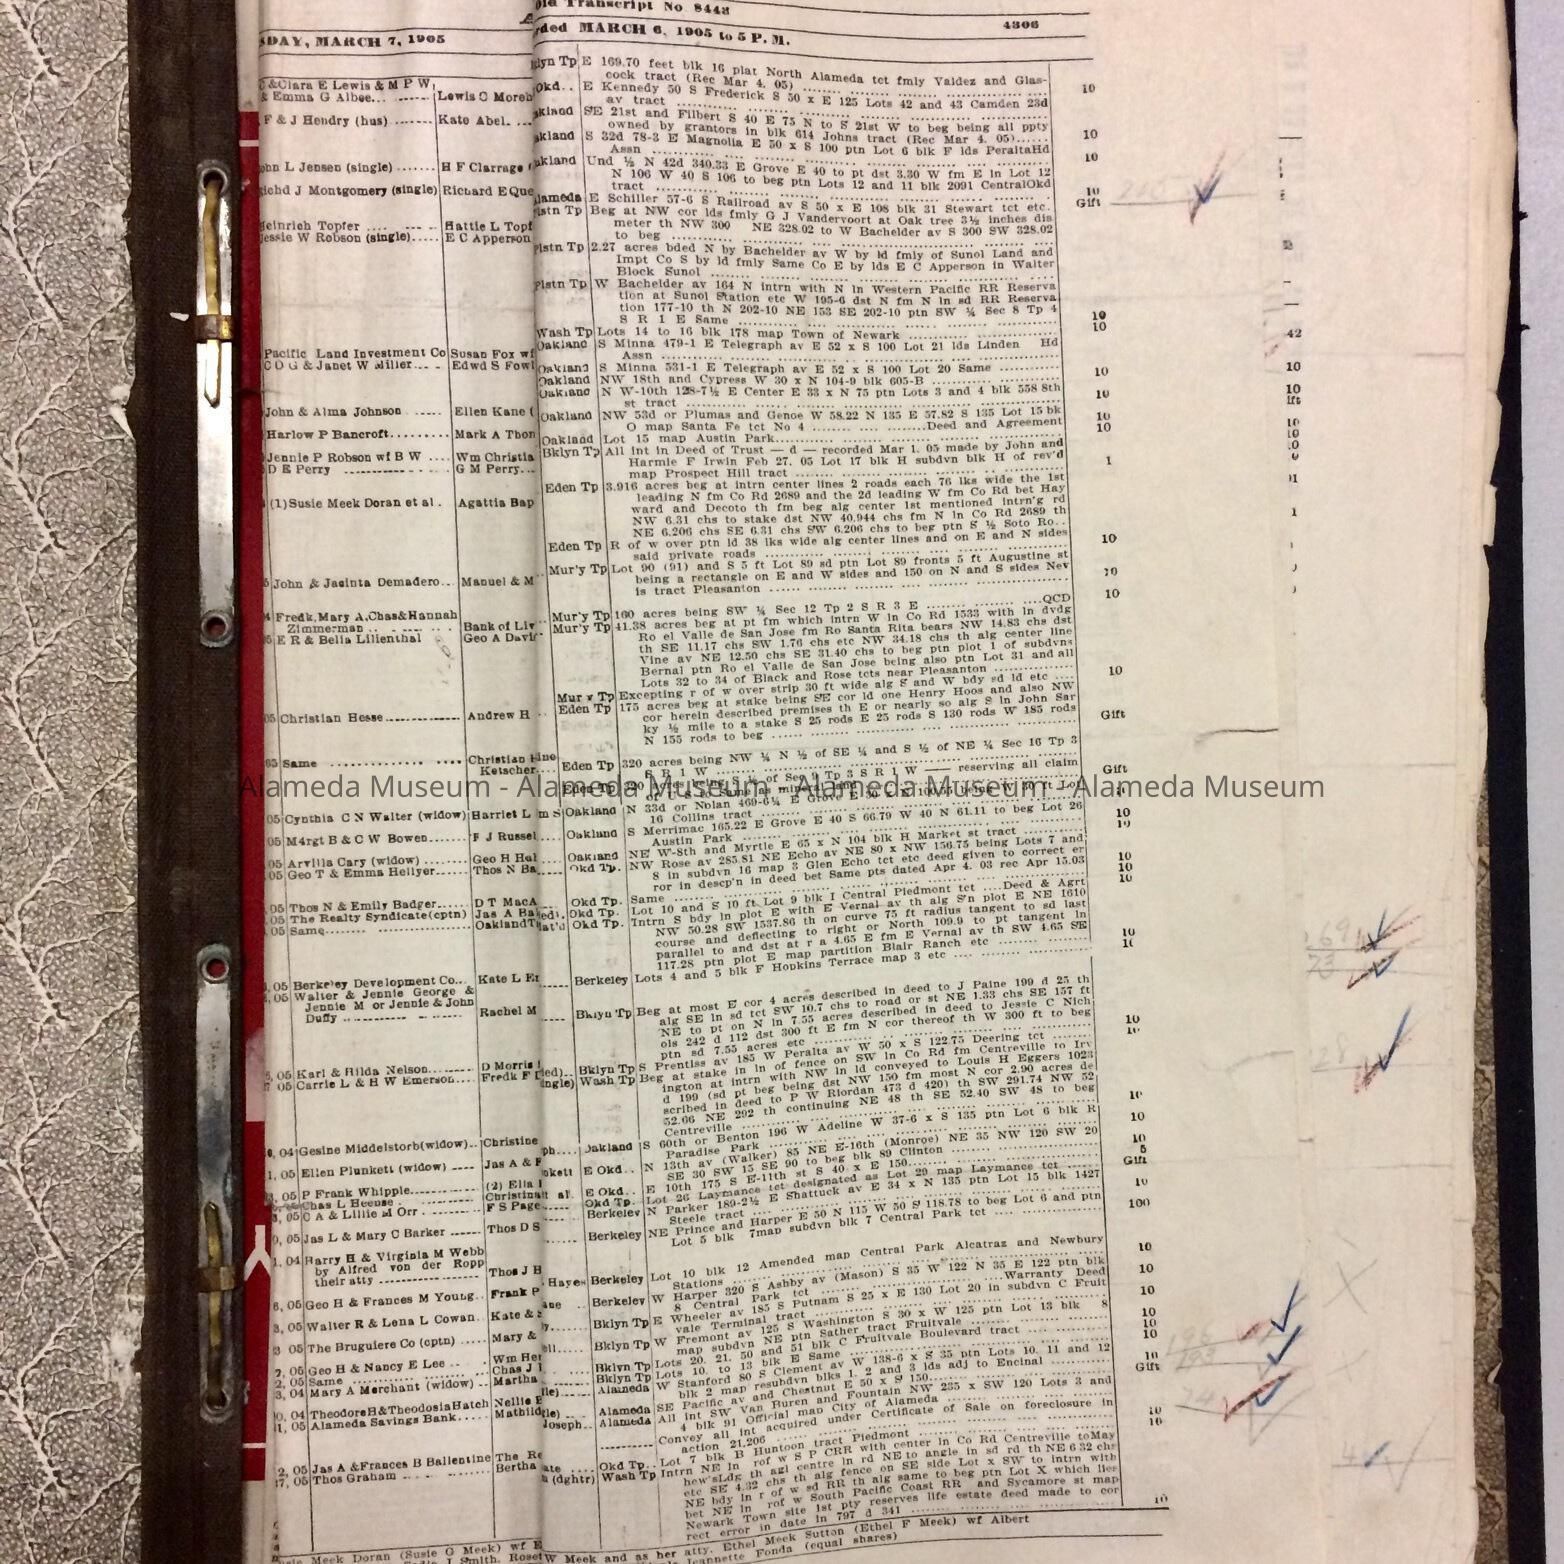 Old Transcript No 8443
DAY, MARCH 7, 1905
ded MARCH 6, 1905 to 5 P. M.
4306
&Clara E Lewis & M P W
& Emma G Albee
Lewis C Moreh
F & J Hendry (hus)
Kate Abel
hn L Jensen (single)
H F Clarrage
chd J Montgomery (single)
Richard E Que
Heinrich Topfer
Hattie L Topf
Jessie W Robson (single)
E C Apperson
Pacific Land Investment Co
Susan Fox wf
C D G & Janet W Miller
Edwd S Fowl
John & Alma Johnson
Ellen Kane (
Harlow P Bancroft
Mark A Thon
Jennie P Robson wf B W
Wm Christia
D E Perry
G M Perry
(1)Susie Meek Doran et al
Agattia Bap
John & Jasinta Demadero
Manuel & M
Fredk,Mary A,Chas&Hannah
Zimmerman
Bank of Liv
E R & Bella Lilienthal
Geo A Davi
05 Christian Hesse
Andrew H
Same
Christian
Ketscher
05 Cynthia C N Walter (widow)
Harriet L
05 M4rgt B & C W Bowen
F J Russel
05 Arvilla Cary (widow)
Geo H Hal
05 Geo T & Emma Hellyer
Thos N Ba
05 Thos N & Emily Badger
D T MacA
05 The Realty Syndicate(cptn)
Jas A Ba
05 Same
Oakland T
05 Berkeley Development Co
Kate L E
05 Walter & Jennie George &
Jennie M or Jennie & John
Duffy
Rachel M
05 Karl & Hilda Nelson
D Morris
05 Carrie L & H W Emerson
Fredk F
04 Gesine Middelstorb(widow)
Christine
1, 05 Ellen Plunkett (widow)
Jas A & F
05 P Frank Whipple
(2) Ella
Chas L Heeuse
Christina
05 C A & Lillie M Orr
F S Page
05 Jas L & Mary C Barker
Thos D S
04 Harry H & Virginia M Webb
by Alfred von der Ropp
their atty
Thos J H
05 Geo H & Frances M Young
Frank P
05 Walter R & Lena L Cowan
Kate &
05 The Bruguiere Co (cptn)
Mary &
05 Geo H & Nancy E Lee
Wm Her
05 Same
Chas J
04 Mary A Merchant (widow)
Martha
04 TheodoreH&TheodosiaHatch
Nellie E
1, 05 Alameda Savings Bank
Mathild
2, 05 Jas A &Frances B Ballentine
The Re
27, 05 Thos Graham
Bertha
lyn Tp E 169.70 feet blk 16 plat North Alameda tct fmly Valdez and Glas-
cock tract (Rec Mar 4, 05) 10
Okd.. E Kennedy 50 S Frederick S 50 x E 125 Lots 42 and 43 Camden 23d
av tract
akland SE 21st and Filbert S 40 E 75 N to S 21st W to beg being all ppty
owned by grantors in blk 614 Johns tract (Rec Mar 4, 05) 10
akland S 32d 78-3 E Magnolia E 50 x S 100 ptn Lot 6 blk F lds PeraltaHd
Assn 10
akland Und ½ N 42d 340.33 E Grove E 40 to pt dst 3.30 W fm E ln Lot 12
N 106 W 40 S 106 to beg ptn Lots 12 and 11 blk 2091 CentralOkd
tract 10
lameda E Schiller 57-6 S Railroad av S 50 x E 108 blk 31 Stewart tct etc. Gift
Plstn Tp Beg at NW cor lds fmly G J Vandervoort at Oak tree 3½ inches dia
meter th NW 300 NE 328.02 to W Bachelder av S 300 SW 328.02
to beg
Plstn Tp 2.27 acres bded N by Bachelder av W by ld fmly of Sunol Land and
Impt Co S by ld fmly Same Co E by lds E C Apperson in Walter
Block Sunol
Plstn Tp W Bachelder av 164 N intrn with N ln Western Pacific RR Reserva
tion at Sunol Station etc W 195-6 dst N fm N ln sd RR Reserva
tion 177-10 th N 202-10 NE 153 SE 202-10 ptn SW ¼ Sec 8 Tp 4
S R 1 E Same 10
Wash Tp Lots 14 to 16 blk 178 map Town of Newark 10
Oakland S Minna 479-1 E Telegraph av E 52 x S 100 Lot 21 lds Linden Hd
Assn
Oakland S Minna 531-1 E Telegraph av E 52 x S 100 Lot 20 Same 10
Oakland NW 18th and Cypress W 30 x N 104-9 blk 605-B
Oakland N W-10th 128-7½ E Center E 33 x N 75 ptn Lots 3 and 4 blk 558 8th
st tract 10
Oakland NW 53d or Plumas and Genoe W 58.22 N 135 E 57.82 S 135 Lot 15 bk
O map Santa Fe tct No 4 Deed and Agreement 10
Oakland Lot 15 map Austin Park 10
Bklyn Tp All int in Deed of Trust — d — recorded Mar 1, 05 made by John and
Harmie F Irwin Feb 27, 05 Lot 17 blk H subdvn blk H of rev'd
map Prospect Hill tract 1
Eden Tp 3.916 acres beg at intrn center lines 2 roads each 76 lks wide the 1st
leading N fm Co Rd 2689 and the 2d leading W fm Co Rd bet Hay
ward and Decoto th fm beg alg center 1st mentioned intrn'g rd
NW 6.31 chs to stake dst NW 40.944 chs fm N ln Co Rd 2689 th
NE 6.206 chs SE 6.31 chs SW 6.206 chs to beg ptn S ½ Soto Ro..
Eden Tp R of w over ptn ld 38 lks wide alg center lines and on E and N sides
said private roads 10
Mur'y Tp Lot 90 (91) and S 5 ft Lot 89 sd ptn Lot 89 fronts 5 ft Augustine st
being a rectangle on E and W sides and 150 on N and S sides Nev
is tract Pleasanton 10
Mur'y Tp 160 acres being SW ¼ Sec 12 Tp 2 S R 3 E QCD 10
Mur'y Tp 41.38 acres beg at pt fm which intrn W ln Co Rd 1533 with ln dvdg
Ro el Valle de San Jose fm Ro Santa Rita bears NW 14.83 chs dst
th SE 11.17 chs SW 1.76 chs etc NW 34.18 chs th alg center line
Vine av NE 12.50 chs SE 31.40 chs to beg ptn plot 1 of subdvns
Bernal ptn Ro el Valle de San Jose being also ptn Lot 31 and all
Lots 32 to 34 of Black and Rose tcts near Pleasanton 10
Mur'y Tp Excepting r of w over strip 30 ft wide alg S and W bdy sd ld etc
Eden Tp 175 acres beg at stake being SE cor ld one Henry Hoos and also NW
cor herein described premises th E or nearly so alg S ln John Sar
ky ½ mile to a stake S 25 rods E 25 rods S 130 rods W 185 rods
N 155 rods to beg Gift
Eden Tp 320 acres being NW ¼ N ½ of SE ¼ and S ½ of NE ¼ Sec 16 Tp 3
S R 1 W
Alameda Museum - Alameda Museum - Alameda Museum - Alameda Museum
Oakland N 33d or Nolan 469-6¼ E Grove E
16 Collins tract 10
Oakland S Merrimac 165.22 E Grove E 40 S 66.79 W 40 N 61.11 to beg Lot 26
Austin Park 10
Oakland NE W-8th and Myrtle E 65 x N 104 blk H Market st tract 10
Okd Tp. NW Rose av 285.81 NE Echo av NE 80 x NW 156.75 being Lots 7 and
8 in subdvn 16 map 3 Glen Echo tct etc deed given to correct er
ror in descp'n in deed bet Same pts dated Apr 4, 03 rec Apr 15,03 10
Okd Tp. Same 10
Okd Tp. Lot 10 and S 10 ft Lot 9 blk I Central Piedmont tct Deed & Agrt 10
Okd Tp. Intrn S bdy ln plot E with E Vernal av th alg S'n plot E NE 1610
NW 50.28 SW 1537.86 th on curve 75 ft radius tangent to sd last
course and deflecting to right or North 109.9 to pt tangent ln
parallel to and dst at r a 4.65 E fm E Vernal av th SW 4.65 SE
117.28 ptn plot E map partition Blair Ranch etc 10
Berkeley Lots 4 and 5 blk F Hopkins Terrace map 3 etc
Bklyn Tp Beg at most E cor 4 acres described in deed to J Paine 199 d 25 th
alg SE ln sd tct SW 10.7 chs to road or st NE 1.33 chs SE 157 ft
NE to pt on N ln 7.55 acres described in deed to Jessie C Nich
ols 242 d 112 dst 300 ft E fm N cor thereof th W 300 ft to beg
ptn sd 7.55 acres etc 10
Bklyn Tp S Prentiss av 185 W Peralta av W 50 x S 122.75 Deering tct
Wash Tp Beg at stake in ln of fence on SW ln Co Rd fm Centreville to Irv
ington at intrn with NW ln ld conveyed to Louis H Eggers 1023
d 199 (sd pt beg being dst NW 150 fm most N cor 2.90 acres de
scribed in deed to P W Riordan 473 d 420) th SW 291.74 NW 52
52.66 NE 292 th continuing NE 48 th SE 52.40 SW 48 to beg
Centreville
Oakland S 60th or Benton 196 W Adeline W 37-6 x S 135 ptn Lot 6 blk R
Paradise Park 10
E Okd.. N 13th av (Walker) 85 NE E-16th (Monroe) NE 35 NW 120 SW 20
SE 30 SW 15 SE 90 to beg blk 89 Clinton 10
E Okd.. E 10th 175 S E-11th st S 40 x E 150 5
Okd Tp. Lot 26 Laymance tct designated as Lot 29 map Laymance tct Gift
Berkeley N Parker 189-2½ E Shattuck av E 34 x N 135 ptn Lot 15 blk 1427
Steele tract 10
Berkeley NE Prince and Harper E 50 N 115 W 50 S 118.78 to beg Lot 6 and ptn
Lot 5 blk 7map subdvn blk 7 Central Park tct 100
Hayes Berkeley Lot 10 blk 12 Amended map Central Park Alcatraz and Newbury
Stations 10
Berkeley W Harper 320 S Ashby av (Mason) S 35 W 122 N 35 E 122 ptn blk
8 Central Park tct Warranty Deed 10
Bklyn Tp E Wheeler av 185 S Putnam S 25 x E 130 Lot 20 in subdvn C Fruit
vale Terminal tract 10
Bklyn Tp W Fremont av 125 S Washington S 30 x W 125 ptn Lot 13 blk 8
map subdvn NE ptn Sather tract Fruitvale 10
Bklyn Tp Lots 20, 21, 50 and 51 blk C Fruitvale Boulevard tract 10
Bklyn Tp Lots 10, to 13 blk E Same 10
Alameda W Stanford 80 S Clement av W 138-6 x S 35 ptn Lots 10, 11 and 12
blk 2 map resubdvn blks 1, 2 and 3 lds adj to Encinal 10
Alameda SE Pacific av and Chestnut E 50 x S 150 Gift
Alameda All int SW Van Buren and Fountain NW 235 x SW 120 Lots 3 and
4 blk 91 Official map City of Alameda
Convey all int acquired under Certificate of Sale on foreclosure in
action 21,206 10
Okd Tp.. Lot 7 blk B Huntoon tract Piedmont 10
Wash Tp Intrn NE ln rof w S P CRR with center ln Co Rd Centreville toMay
hew'sLdg th agl centre ln rd NE to angle in sd rd th NE 6 32 chs
etc SE 4.32 chs th alg fence on SE side Lot x SW to intrn with
NE bdy ln r of w sd RR th alg same to beg ptn Lot X which lies
bet NE ln rof w South Pacific Coast RR and Sycamore st map
Newark Town site 1st pty reserves life estate deed made to cor
rect error in date in 797 d 341 10
Meek Doran (Susie G Meek) wf E
W Meek and as her atty. Ethel Meek Sutton (Ethel F Meek) wf Albert
J Smith, Roset
Jeannette Fonda (equal shares)